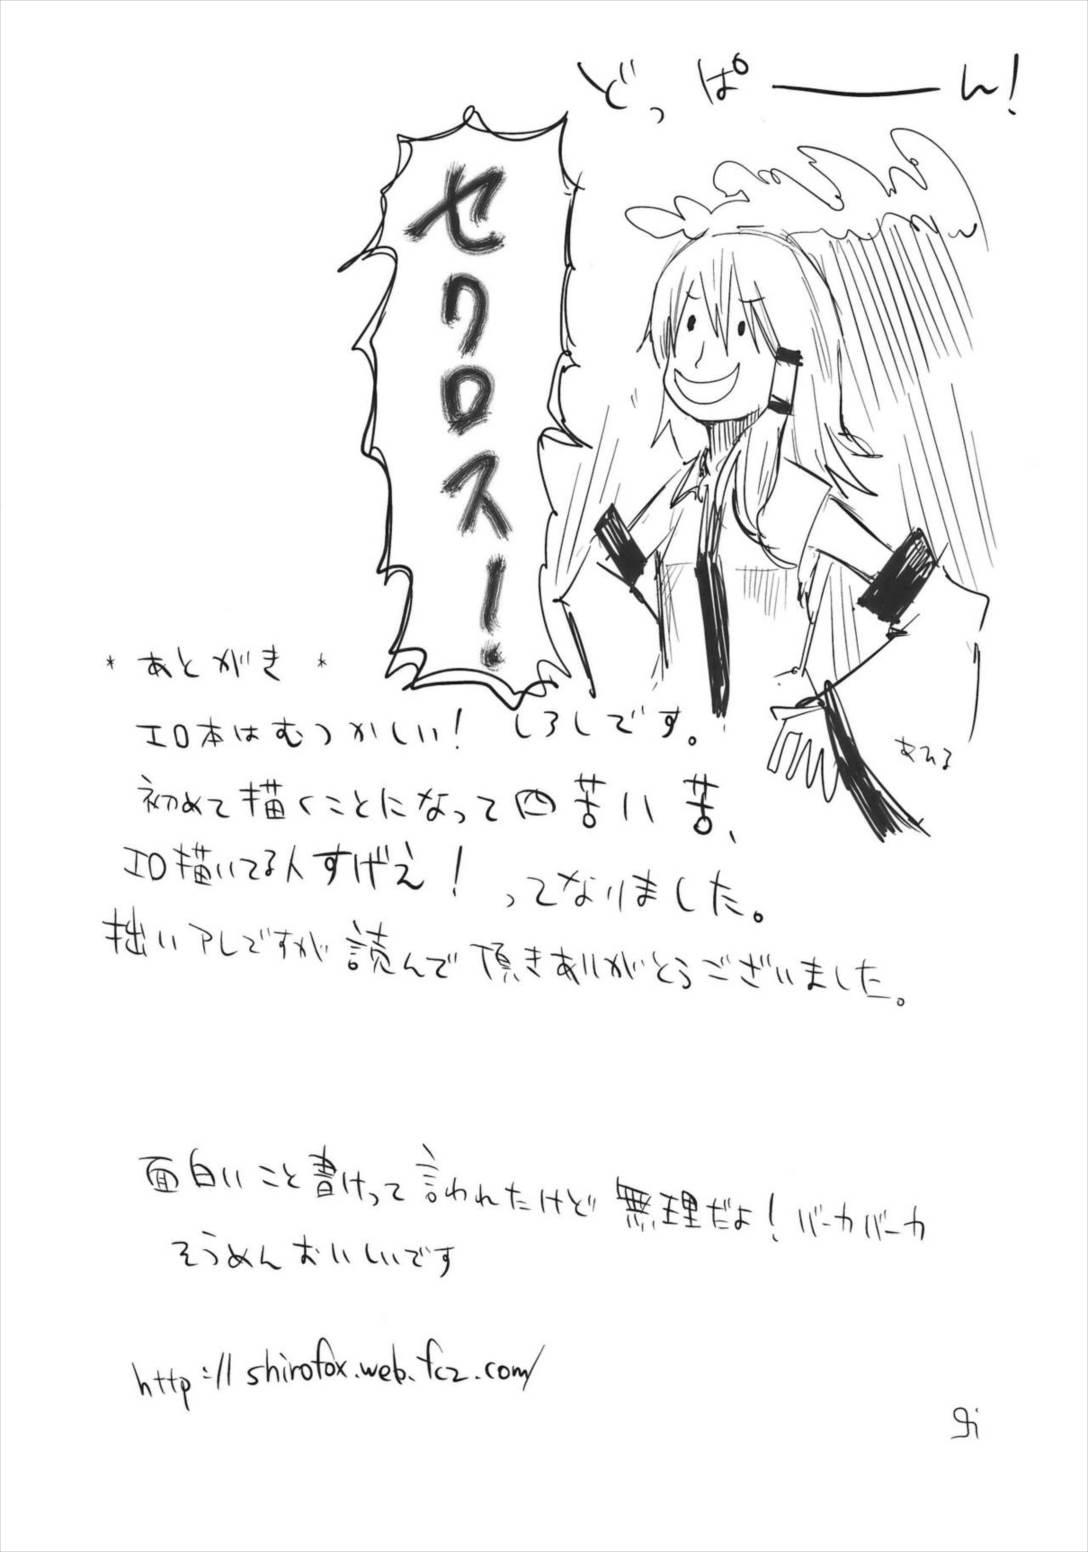 どっぱーーーん!
セクロスー!
* あとがき *
エロ本はむつかしい! しろしです。
初めて描くことになって四苦八苦、
エロ描いてる人すげえ! ってなりました。
拙いアレですが読んで頂きありがとうございました。
面白いこと書けって言われたけど無理だよ!バーカバーカ
そうめんおいしいです
http://shirofox.web.fc2.com/